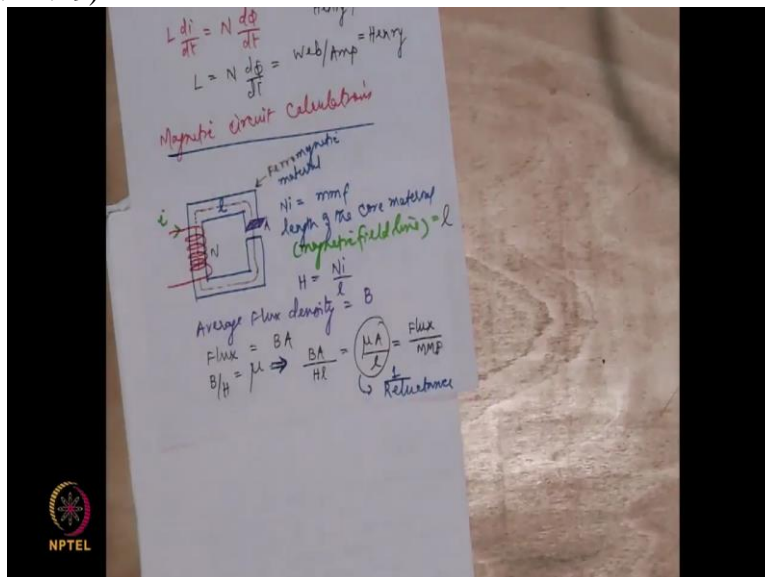 L di/dt = N dϕ/dt
L = N dϕ/dI = Web/Amp = Henry
Magnetic circuit Calculations
Ferromagnetic
material
l
i
N
A
Ni = mmf
length of the core material
(magnetic field line) = l
H = Ni/l
Average Flux density = B
Flux = BA
B/H = μ ⇒ BA/Hl = μA/l = Flux/MMF
1/Reluctance
NPTEL